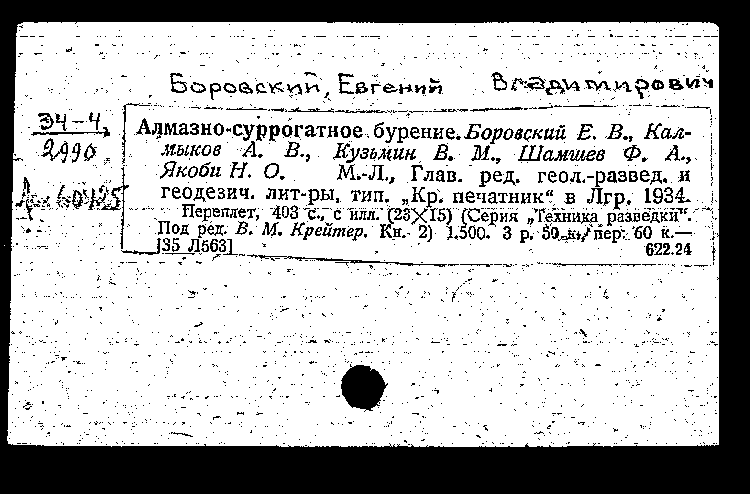 Боровский, Евгений Владимирович
34-4
2990
Алмазно-суррогатное бурение. Боровский Е. В., Кал-
мыков А. В., Кузьмин В. М., Шамшев Ф. А.,
Якоби Н. О. М.-Л., Глав. ред. геол.-развед. и
геодезич. лит-ры, тип. „Кр. печатник“ в Лгр. 1934.
Переплет, 403 с., с илл. (23×15) (Серия „Техника разведки“.
Под ред. В. М. Крейтер. Кн. 2) 1.500. 3 р. 50 к., пер. 60 к.—
[35 Л563] 622.24